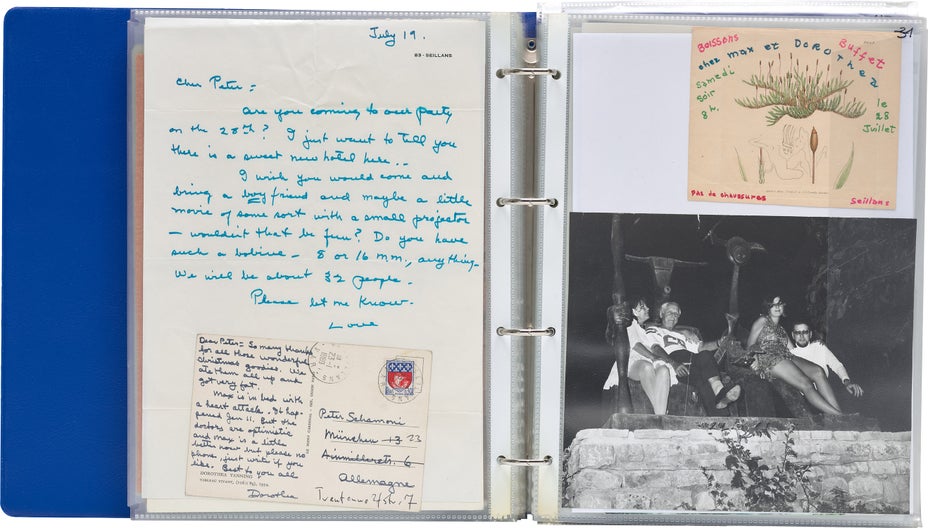 July 19.
83 - SEILLANS
Cher Peter =
are you coming to our party
on the 28th? I just want to tell you
there is a sweet new hotel here..
I wish you would come and
bring a boy friend and maybe a little
movie of some sort with a small projector
– wouldn't that be fun? Do you have
such a bobine – 8 or 16 mm., anything.
We will be about 32 people.
Please let me know.
Love
Dear Peter = So many thanks
for all those wonderful
Christmas goodies. We
ate them all up and
got very fat.
Max is in bed with
a heart attack. It hap-
pened Jan 11. But the
doctors are optimistic
and Max is a little
better now but please no
phone, just write if you
like. Best to you all
DOROTHEA TANNING
Dorothea
Peter Schamoni
München 13 23
Ainmillerstr. 6
Allemagne
31
Boissons
Buffet
chez max et DoRoThea
Samedi
Soir
8 h.
le
28
Juillet
Pas de chaussures
Seillans